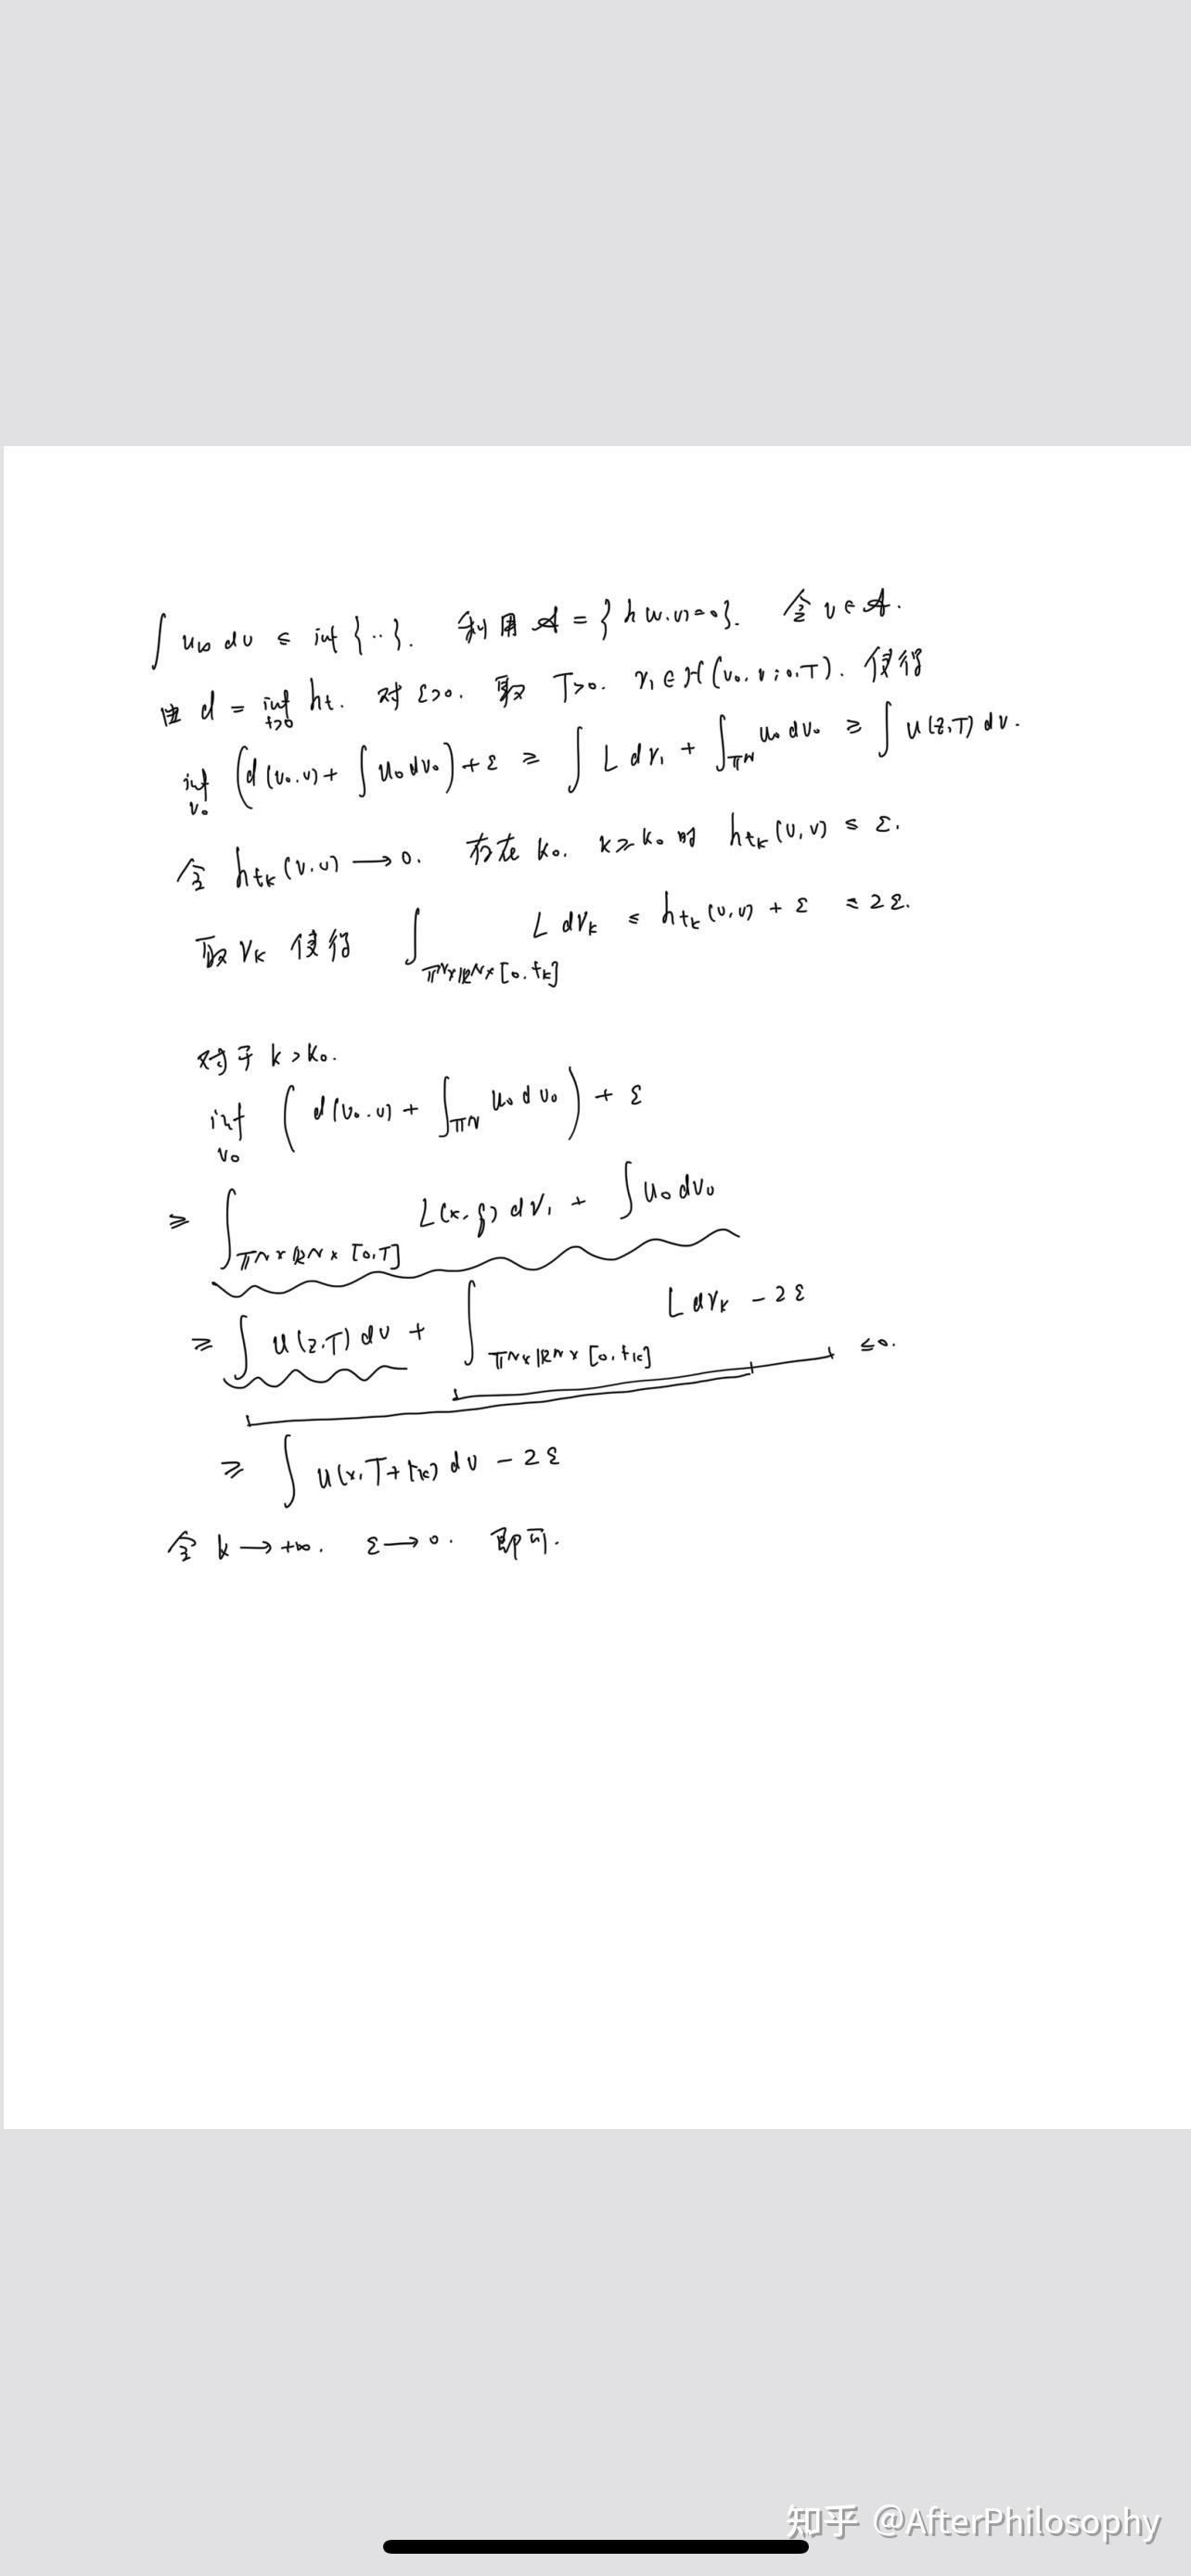 ∫ u∞ dν ≤ inf {··}. 利用 𝒜 = {h(ν.ν)=0}. 令 ν ∈ 𝒜.
由 d = inf_{t>0} h_t. 对 ε>0. 取 T>0. γ₁ ∈ ℋ(ν₀.ν;0.T). 使得
inf_{ν₀} (d(ν₀.ν) + ∫ u₀ dν₀) + ε ≥ ∫ L dγ₁ + ∫_{𝕋ᴺ} u₀ dν₀ ≥ ∫ u(z,T) dν.
令 h_{t_k}(ν.ν) → 0. 存在 k₀. k ≥ k₀ 时 h_{t_k}(ν,ν) ≤ ε.
取 γ_k 使得 ∫_{𝕋ᴺ×ℝᴺ×[0.t_k]} L dγ_k ≤ h_{t_k}(ν,ν) + ε ≤ 2ε.
对于 k > k₀.
inf_{ν₀} (d(ν₀.ν) + ∫_{𝕋ᴺ} u₀ dν₀) + ε
≥ ∫_{𝕋ᴺ×ℝᴺ×[0,T]} L(x,ξ) dγ₁ + ∫ u₀ dν₀
≥ ∫ u(z,T) dν + ∫_{𝕋ᴺ×ℝᴺ×[0,t_k]} L dγ_k − 2ε ≤ 0.
≥ ∫ u(x,T+t_k) dν − 2ε
令 k → +∞. ε → 0. 即可.
知乎 @AfterPhilosophy